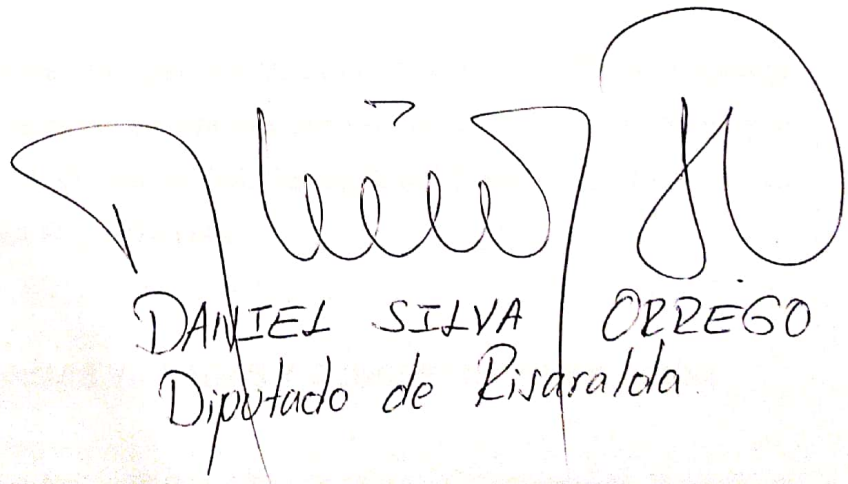 DANIEL SILVA ORREGO
Diputado de Risaralda